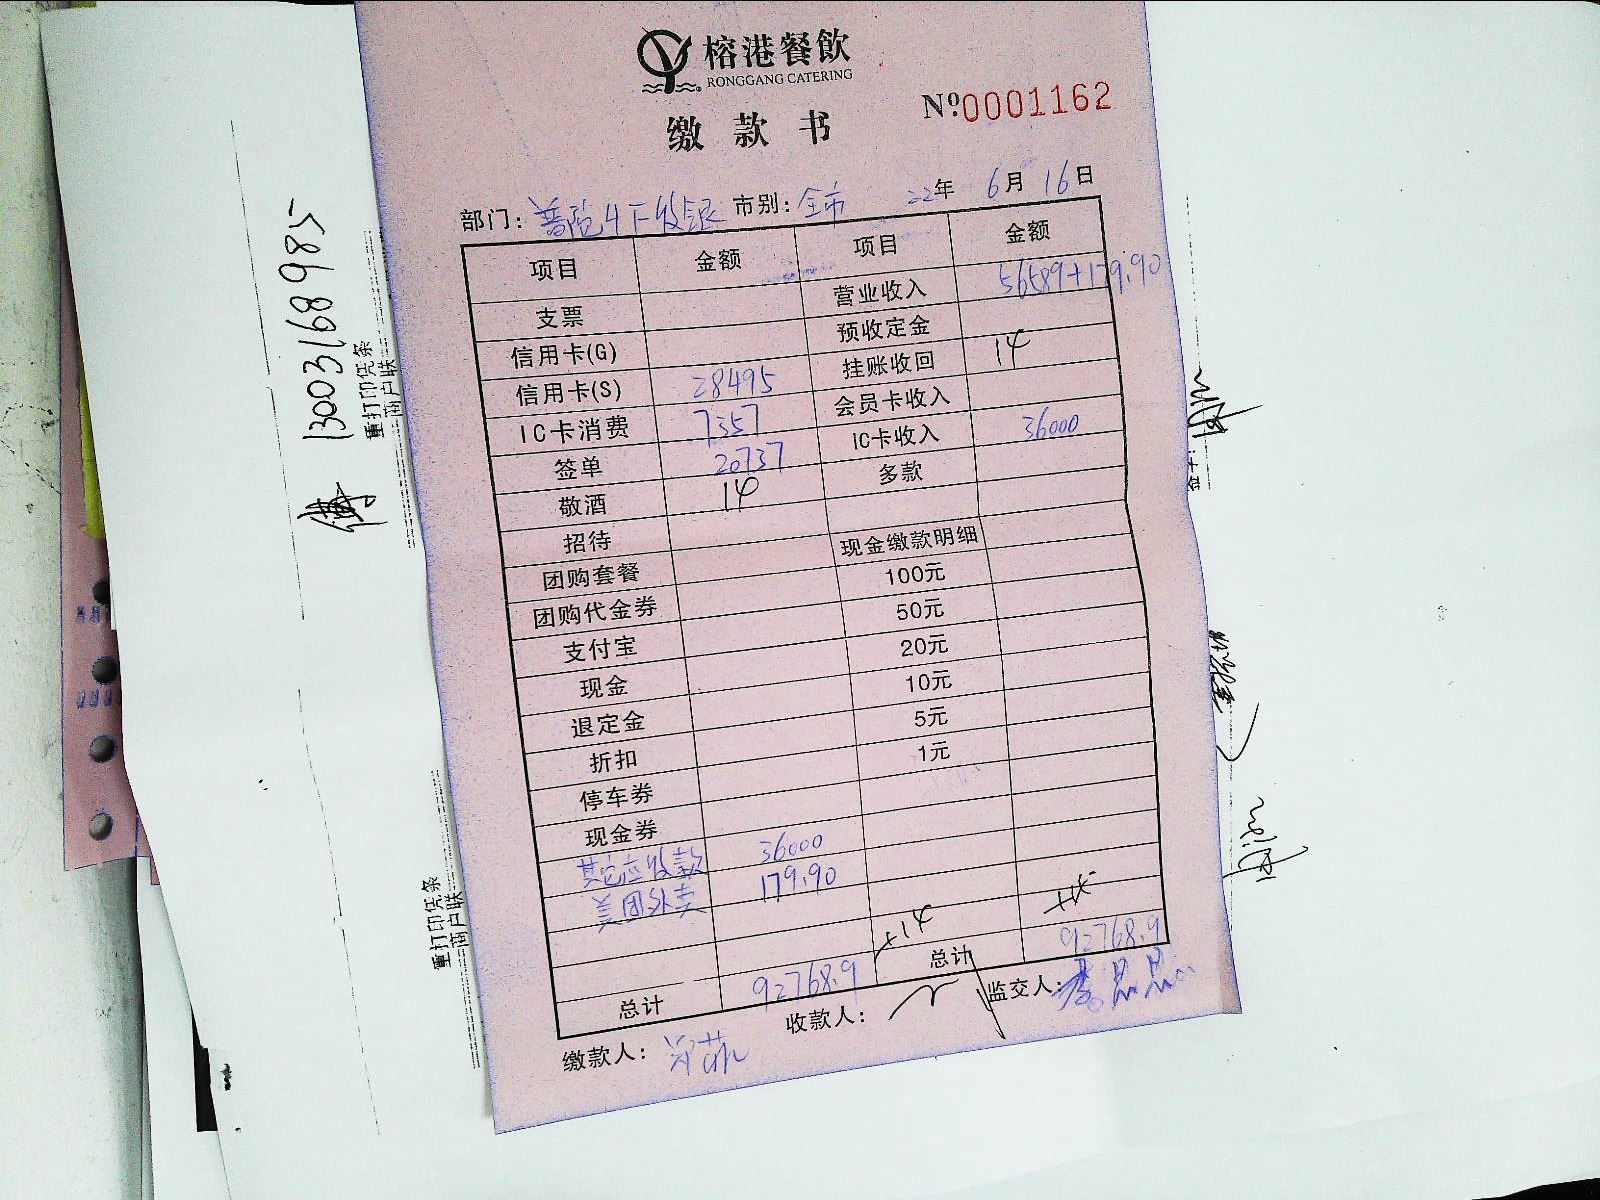 榕港餐飲
RONGGANG CATERING
缴款书
Nº:0001162
部门: 市别: 全市 22年 6月 16日
项目 金额 项目 金额
支票 营业收入 56589+179.90
信用卡(G) 预收定金
信用卡(S) 28495 挂账收回 14
IC卡消费 7357 会员卡收入
签单 20737 IC卡收入 36000
敬酒 14 多款
招待 现金缴款明细
团购套餐 100元
团购代金券 50元
支付宝 20元
现金 10元
退定金 5元
折扣 1元
停车券
现金券
其它应收 36000
美团外卖 179.90
+14
总计 92768.9 总计 92768.9
缴款人: 收款人: 监交人:
13003168985
重打印凭条
商户联
重打印凭条
商户联